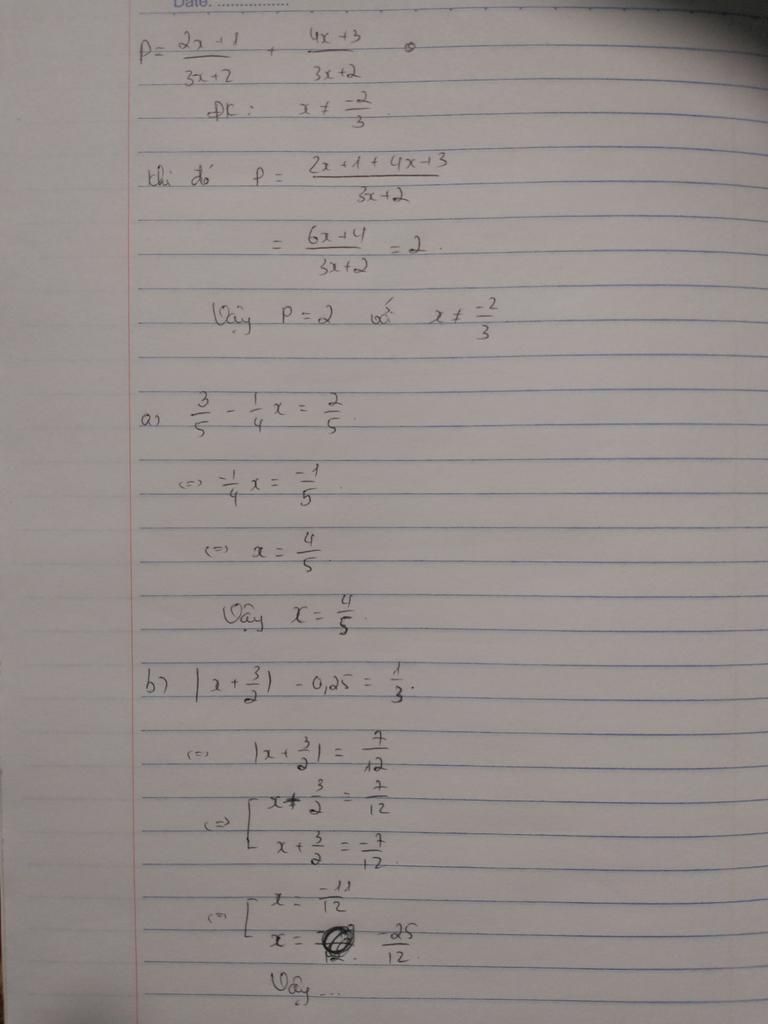 Date: ................
P = \frac{2x+1}{3x+2} + \frac{4x+3}{3x+2}
ĐK: x ≠ \frac{-2}{3}
Khi đó P = \frac{2x+1+4x+3}{3x+2}
= \frac{6x+4}{3x+2} = 2.
Vậy P = 2 với x ≠ \frac{-2}{3}
a) \frac{3}{5} - \frac{1}{4}x = \frac{2}{5}.
<=> \frac{-1}{4}x = \frac{-1}{5}.
<=> x = \frac{4}{5}
Vậy x = \frac{4}{5}.
b) |x + \frac{3}{2}| - 0,25 = \frac{1}{3}.
<=> |x + \frac{3}{2}| = \frac{7}{12}
<=> [ x + \frac{3}{2} = \frac{7}{12}
x + \frac{3}{2} = \frac{-7}{12}.
<=> [ x = \frac{-11}{12}
x = \frac{-25}{12}.
Vậy ...